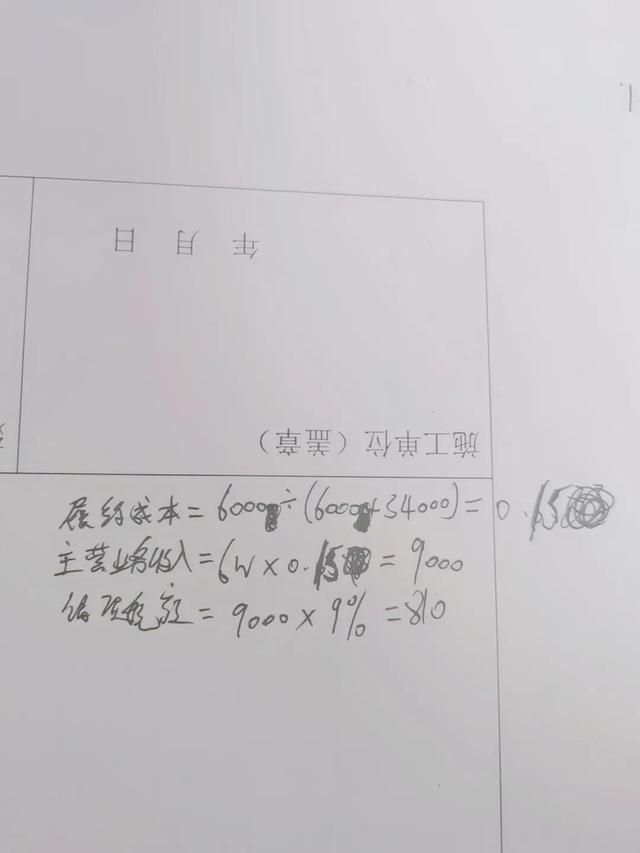 年 月 日
施工单位（盖章）
履约成本=6000÷(6000+34000)=0.15
主营业务收入=6W×0.15=9000
销项税额=9000×9%=810